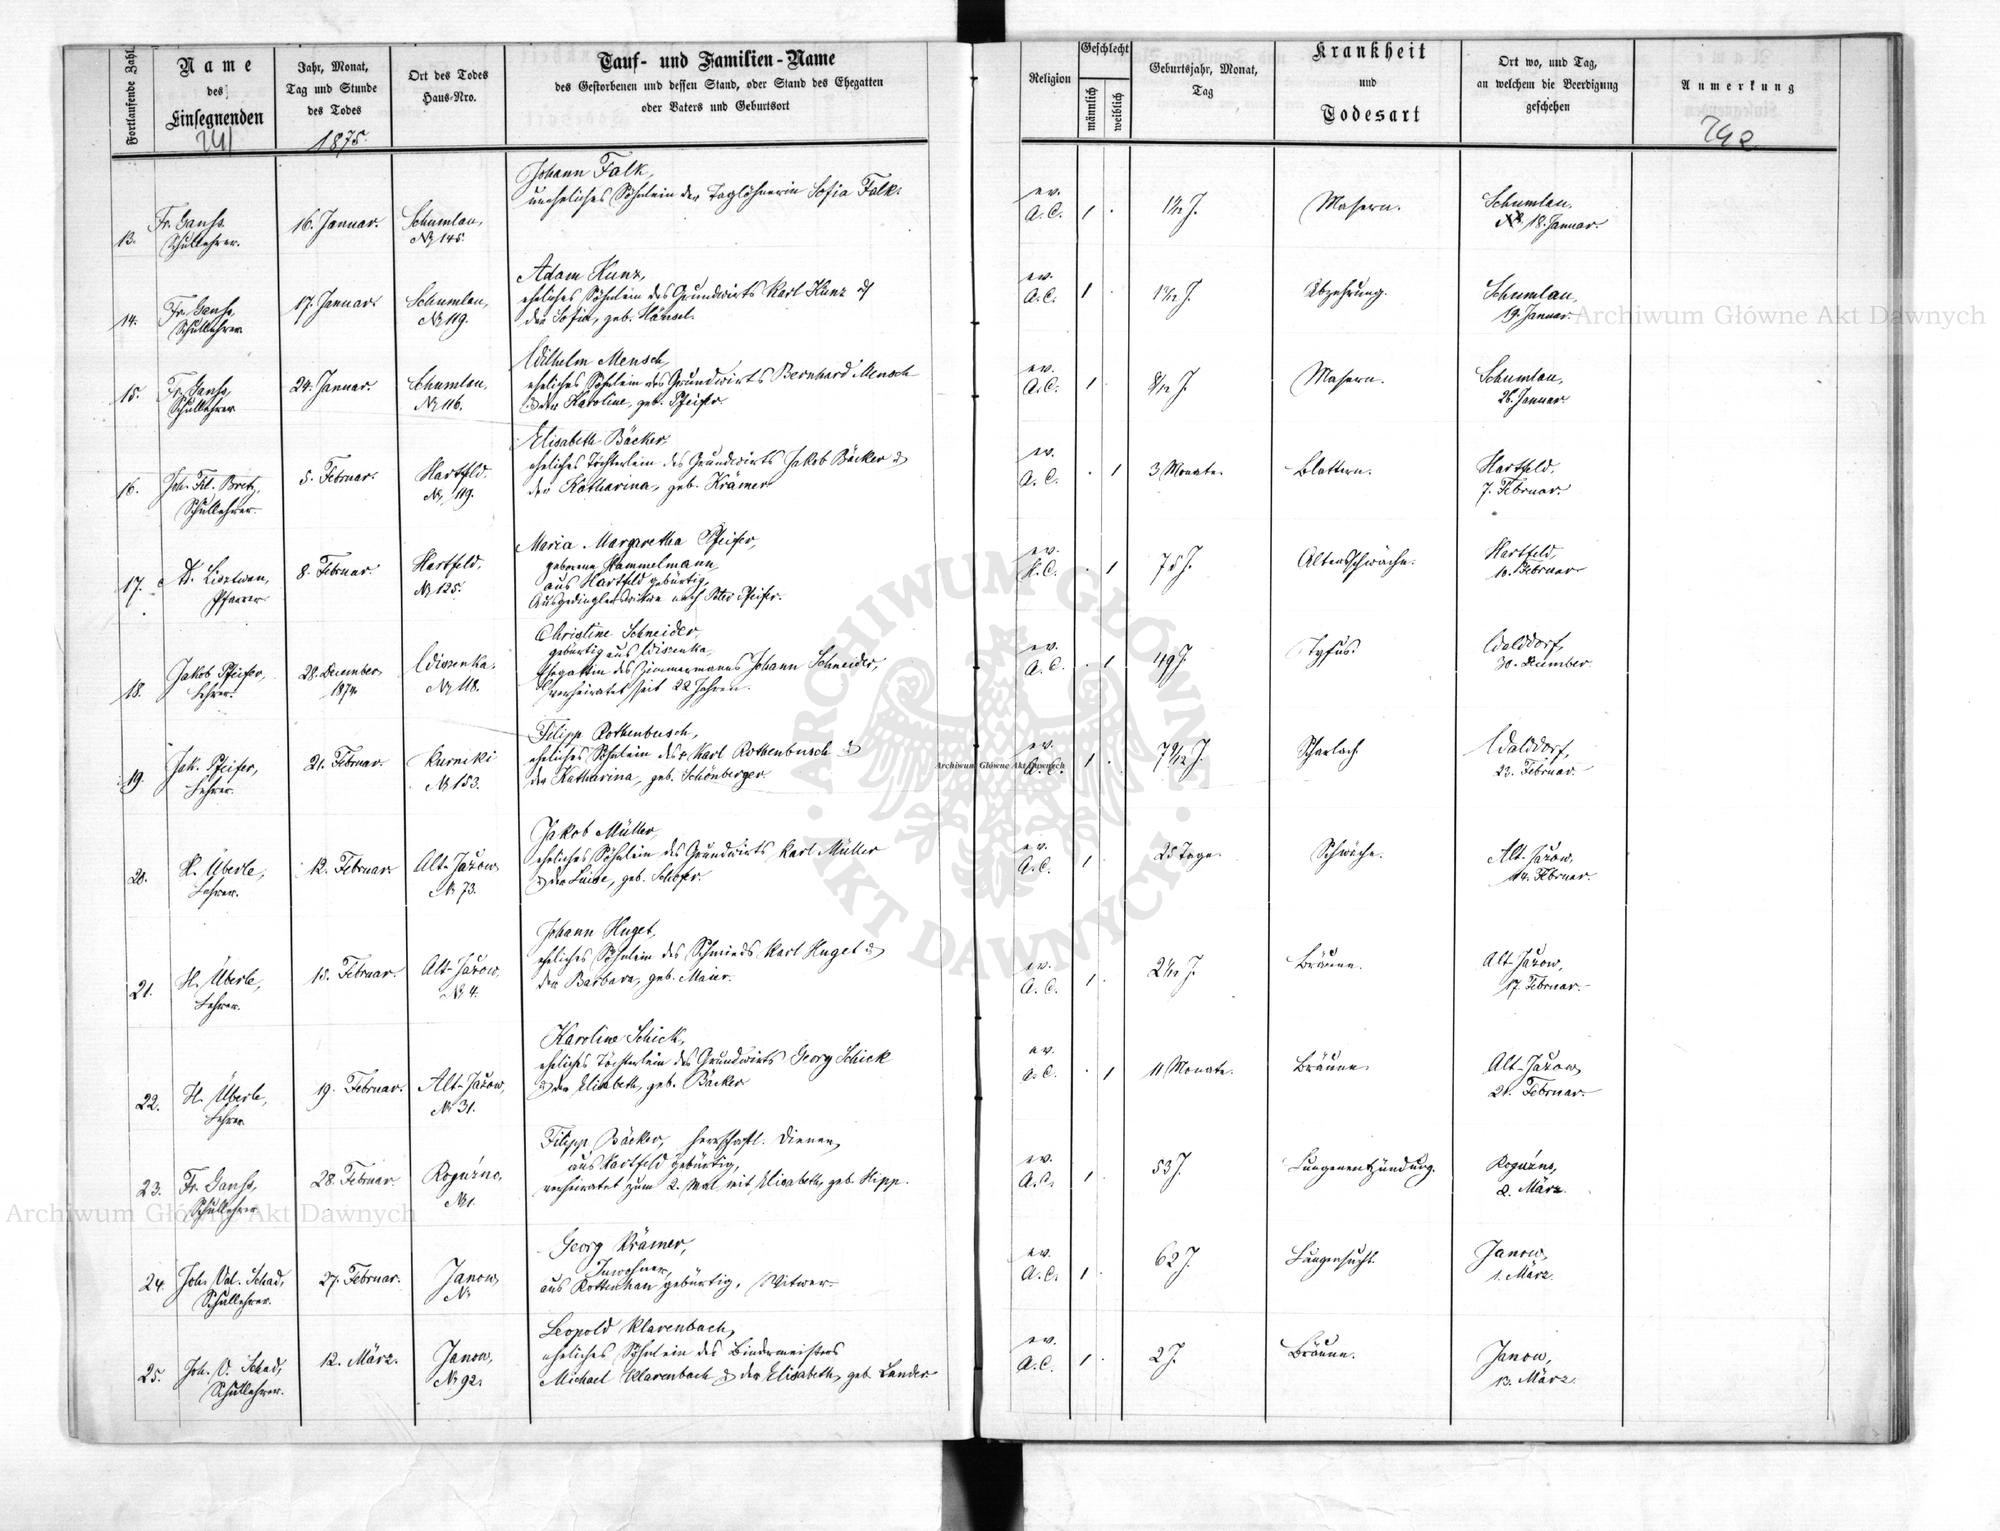 Fortlaufende Zahl.
Name
des
Einsegnenden
741
Jahr, Monat,
Tag und Stunde
des Todes
1875.
Ort des Todes
Haus-Nro.
Tauf- und Familien-Name
des Gestorbenen und dessen Stand, oder Stand des Ehegatten
oder Vaters und Geburtsort
Religion
Geschlecht
männlich
weiblich
Geburtsjahr, Monat,
Tag
Krankheit
und
Todesart
Ort wo, und Tag,
an welchem die Beerdigung
geschehen
Anmerkung
742
13.
Fr. Ganss.
Schullehrer.
16. Januar.
Schumlau,
№ 145.
Johann Falk,
uneheliches Söhnlein der Taglöhnerin Sofia Falk.
ev.
A. C.
1
Masern.
Schumlau,
18. Januar.
14.
Fr. Ganss,
Schullehrer
17. Januar
Schumlau,
№ 119.
Adam Kunz,
eheliches Söhnlein des Grundwirts Karl Kunz &
der Sofia, geb. Hänsel.
ev.
A. C.
1
Abzehrung.
Schumlau,
19. Januar.
15.
Fr. Ganss,
Schullehrer
24. Januar.
Schumlau,
№ 116.
Wilhelm Mensch,
eheliches Söhnlein des Grundwirts Bernhard Mensch
& der Karoline, geb. Pfeifer.
ev.
A. C.
1
8/12 J.
Masern.
Schumlau,
26. Januar.
16.
Joh. Fil. Bretz,
Schullehrer.
5. Februar.
Hartfeld.
№ 119.
Elisabeth Bäcker,
eheliches Töchterlein des Grundwirts Jakob Bäcker &
der Katharina, geb. Krämer
ev.
A. C.
1
3 Monate.
Blattern.
Hartfeld.
7. Februar.
17.
Pfarrer
8. Februar.
Hartfeld,
№ 125.
Maria Margaretha Pfeifer,
geborene Hammelmann,
aus Hartfeld gebürtig.
Ausgedinglerswitwe nach Peter Pfeifer.
ev.
1
75 J.
Altersschwäche.
Hartfeld,
10. Februar
18.
Jakob Pfeifer,
Lehrer.
28. December,
1874
Wiszenka,
№ 118.
Christine Schneider,
gebürtig aus Wiszenka,
Ehegattin des Zimmermanns Johann Schneider,
verheiratet seit 22 Jahren.
ev.
A. C.
1
49 J.
Tyfus.
Walddorf,
30. Dezember.
19.
Jak. Pfeifer,
Lehrer.
21. Februar
Kurniki
№ 153.
Filipp Rothenbusch,
eheliches Söhnlein des Karl Rothenbusch &
der Katharina, geb. Schönberger
ev.
A. C.
1
7 9/12 J.
Scharlach
Walddorf,
23. Februar.
20.
H. Überle,
Lehrer.
12. Februar
Alt-Jažow,
№ 73.
Jakob Müller,
eheliches Söhnlein des Grundwirts Karl Müller
& der Luise, geb. Schofer.
ev.
A. C.
1
25 Tage.
Schwäche.
Alt-Jažow,
14. Februar.
21.
H. Überle,
Lehrer.
15. Februar.
Alt-Jažow,
№ 4.
Johann Huget,
eheliches Söhnlein des Schmieds Karl Huget &
der Barbara, geb. Maier.
ev.
A. C.
1
Bräune.
Alt-Jažow,
17. Februar.
22.
H. Überle,
Lehrer
19. Februar.
Alt-Jažow,
№ 31.
Karoline Schick,
eheliches Töchterlein des Grundwirts Georg Schick
& der Elisabeth, geb. Bäcker
ev.
A. C.
1
11 Monate.
Bräune.
Alt-Jažow,
21. Februar.
23.
Fr. Ganss,
Schullehrer
28. Februar
Roguźno,
№ 1.
Filipp Bäcker, herrschaftl. Diener,
aus Hartfeld gebürtig,
verheiratet zum 2. Mal mit Elisabeth, geb. Hipp.
ev.
A. C.
1
53 J.
Lungenentzündung.
Roguźno,
2. März.
24.
Joh. Val. Schad,
Schullehrer.
27. Februar.
Janow,
№
Georg Krämer,
Inwohner,
aus Rottenhan gebürtig, Witwer.
ev.
A. C.
1
62 J.
Lungensucht.
Janow,
1. März.
25.
Joh. V. Schad,
Schullehrer.
12. März.
Janow,
№ 92.
Leopold Klarenbach,
eheliches Söhnlein des Bindermeisters
Michael Klarenbach & der Elisabeth, geb. Lander
ev.
A. C.
1
2 J.
Bräune.
Janow,
13. März.
Archiwum Główne Akt Dawnych
Archiwum Główne Akt Dawnych
Archiwum Główne Akt Dawnych
ARCHIWUM GŁÓWNE · AKT DAWNYCH ·